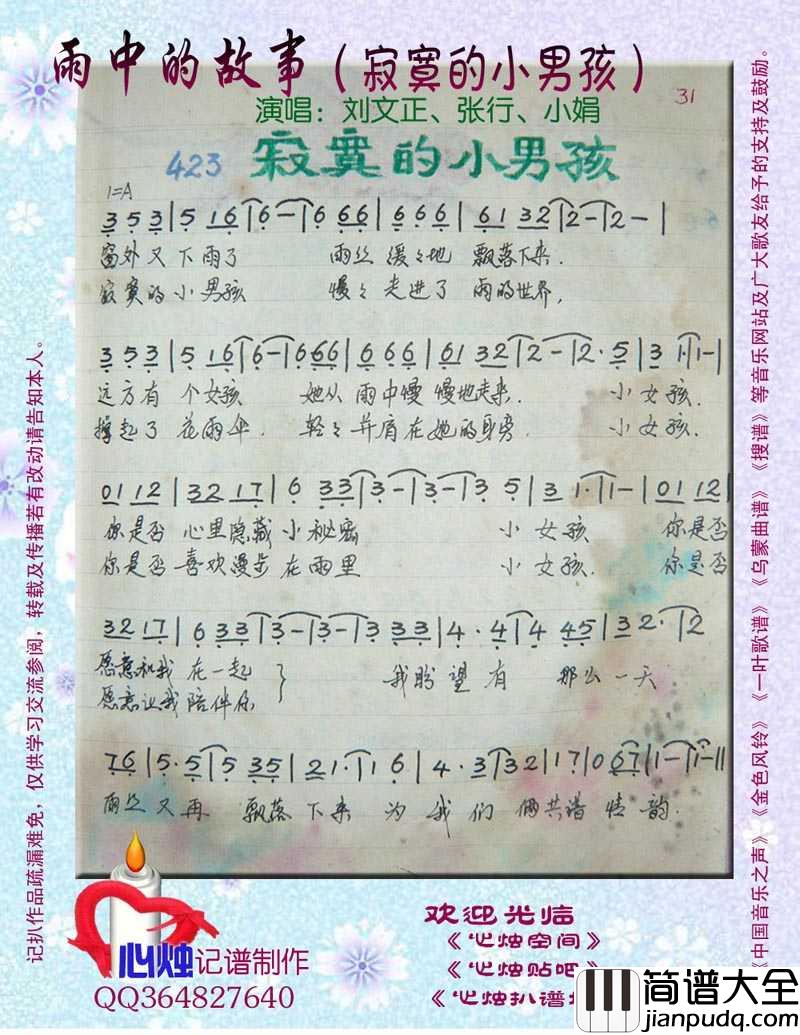 雨中的故事（寂寞的小男孩）
演唱：刘文正、张行、小娟
31
423 寂寞的小男孩
1=A
3 5 3 | 5 1 6 | 6 — | 6 6 6 | 6 6 6 | 6 1 3 2 | 2 — | 2 — |
窗外又下雨了 雨丝缓々地 飘落下来.
寂寞的小男孩 慢々走进了 雨的世界,
3 5 3 | 5 1 6 | 6 — | 6 6 6 | 6 6 6 | 6 1 3 2 | 2 — | 2 · 5 | 3 1 · | 1 — |
远方有个女孩 她从雨中慢慢地走来. 小女孩.
撑起了花雨伞. 轻々并肩在她的身旁 小女孩.
0 1 1 2 | 3 2 1 7 | 6 3 3 | 3 — | 3 — | 3 5 | 3 1 · | 1 — | 0 1 1 2 |
你是否心里隐藏小秘密 小女孩 你是否
你是否喜欢漫步在雨里 小女孩. 你是否
3 2 1 7 | 6 3 3 | 3 — | 3 — | 3 3 3 | 4 · 4 | 4 4 5 | 3 2 · | 2
愿意和我在一起 我盼望有那么一天
愿意让我陪伴你
7 6 | 5 · 5 | 5 3 5 | 2 1 · | 1 6 | 4 · 3 | 3 2 | 1 7 | 0 6 7 | 1 — | 1 — ||
雨丝又再飘落下来为我们俩共谱情韵.
记扒作品疏漏难免，仅供学习交流参阅，转载及传播若有改动请告知本人。
《中国音乐之声》《金色风铃》《一叶歌谱》《乌蒙曲谱》《搜谱》等音乐网站及广大歌友给予的支持及鼓励。
心烛记谱制作
QQ364827640
欢迎光临
《心烛空间》
《心烛贴吧》
《心烛扒谱
简谱大全
jianpudq.com